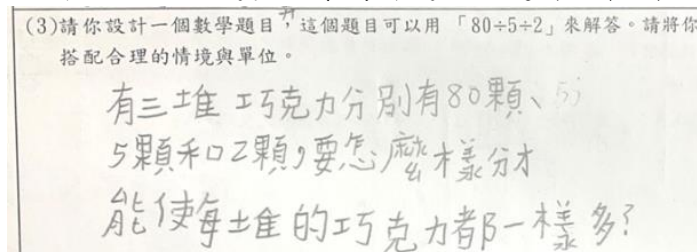 (3)請你設計一個數學題目，這個題目可以用「80÷5÷2」來解答。請將你
搭配合理的情境與單位。
有三堆巧克力分別有80顆、
5顆和2顆，要怎麼樣分才
能使每堆的巧克力都一樣多？